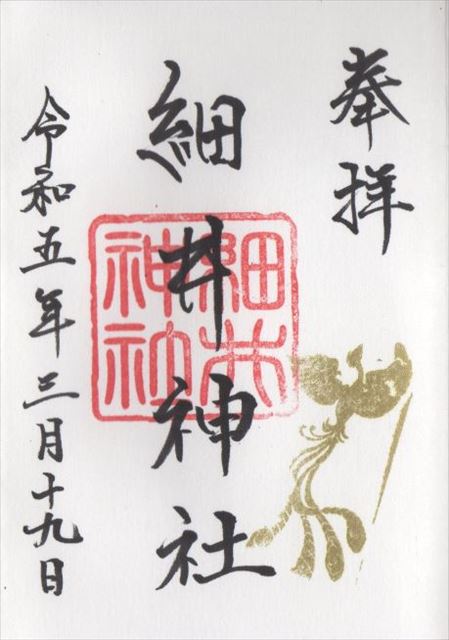 奉拝
細井神社
細井
神社
令和五年三月十九日